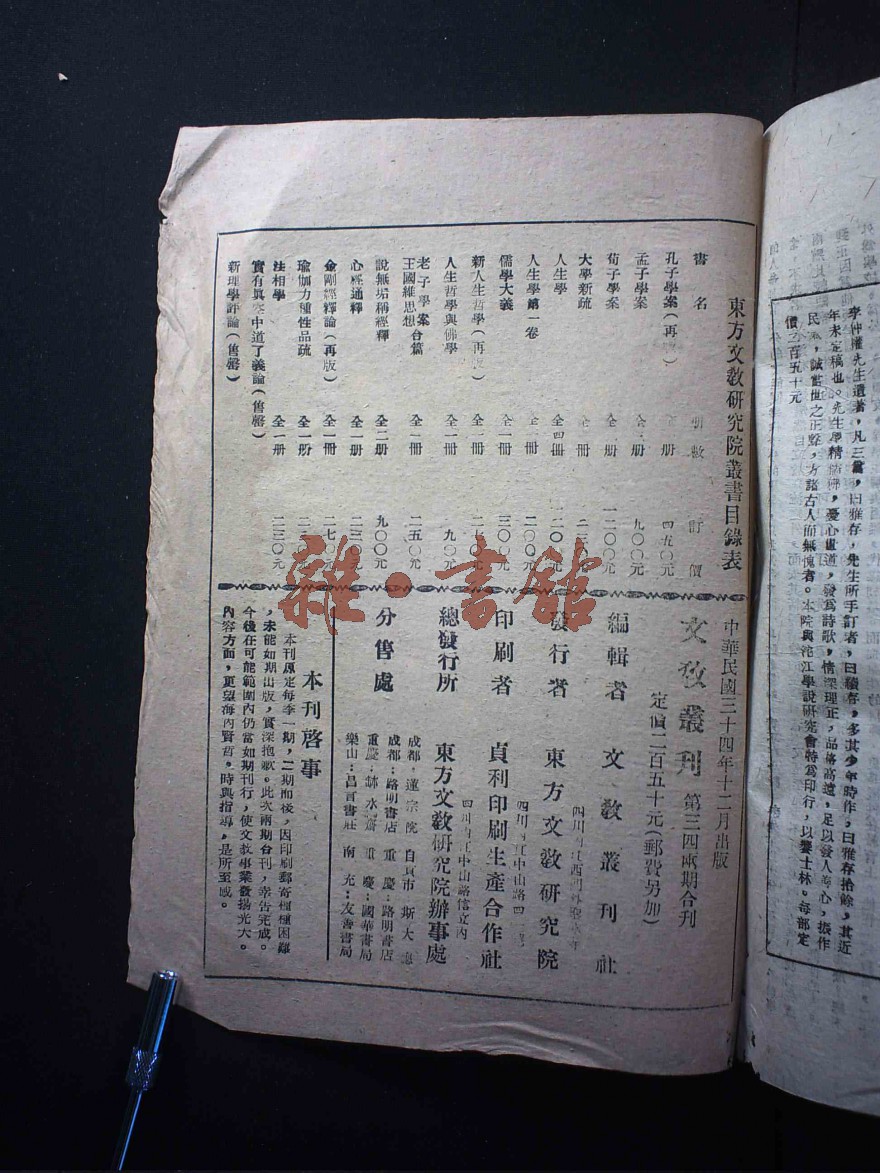 李仲權先生遺著，凡三篇，曰雅存，先生所手訂者，曰續存，多其少年時作，曰雅存拾餘，其近
年未定稿也。先生學精儒佛，憂心世道，發為詩歌，情深理正，品格高遠，足以發人善心，振作
民氣，誠當世之正聲，方諸古人而無愧者。本院與沱江學說研究會特為印行，以饗士林。每部定
價六百五十元
東方文敎硏究院叢書目錄表
書名 冊數 訂價
孔子學案（再版） 冊 四五〇元
孟子學案 册 九〇〇元
荀子學案 全 册 一二〇〇元
大學新疏 全 冊
人生學 全四冊 二〇〇元
人生學第一卷 全 冊 二〇〇元
儒學大義 全一冊 三〇〇元
新人生哲學（再版） 全一冊
人生哲學與佛學 全一冊 九〇元
老子學案 王國維思想 合篇 全一冊 二五〇元
說無垢稱經釋 全二册 九〇〇元
心經通釋 全一册 二三〇元
金剛經釋論（再版） 全一冊 二七〇元
瑜伽力種性品疏 全一册
法相學 全一册 二三〇元
實有眞空中道了義論（售罄）
新理學評論（售罄）
中華民國三十四年十二月出版
文敎叢刋 第三四兩期合刋
定價二百五十元（郵費另加）
編輯者 文敎叢刋社
四川內江西門外
發行者 東方文敎硏究院
四川內江中山路四
印刷者 貞利印刷生產合作社
四川內江中山路信立內
總發行所 東方文敎硏究院辦事處
成都：蓮宗院 自貢市：斯大
分售處 成都：路明書店 重慶：路明書店
重慶： 水齋 重慶：國華書局
樂山：昌言書社 南充：友善書局
本刋啓事
本刋原定每季一期，二期而後，因印刷郵寄種種困難
，未能如期出版，實深抱歉。此次兩期合刋，幸告完成。
今後在可能範圍內仍當如期刋行，使文敎事業發揚光大。
內容方面，更望海內賢哲。時與指導，是所至感。
雜·書館